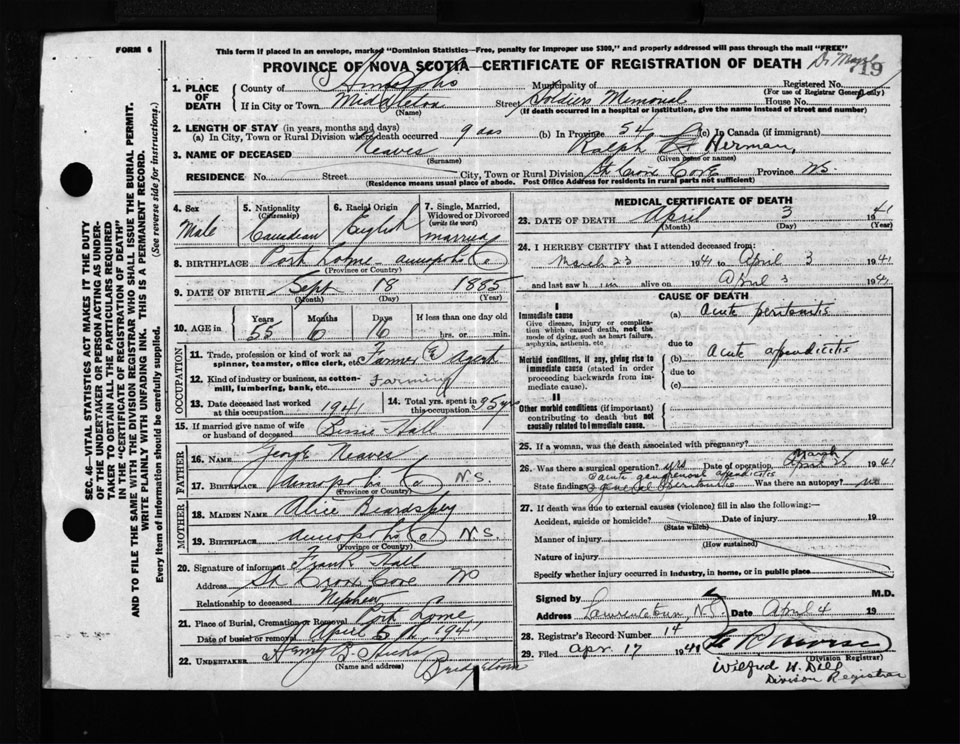 FORM 6
This form if placed in an envelope, marked "Dominion Statistics—Free, penalty for improper use $300," and properly addressed will pass through the mail "FREE"
PROVINCE OF NOVA SCOTIA—CERTIFICATE OF REGISTRATION OF DEATH
719
1. PLACE OF DEATH
County of Annapolis Municipality of Registered No.
(For use of Registrar General only)
If in City or Town Middleton Street Soldiers Memorial House No.
(Name) (If death occurred in a hospital or institution, give the name instead of street and number)
2. LENGTH OF STAY (in years, months and days)
(a) In City, Town or Rural Division where death occurred 9 das (b) In Province 54 (c) In Canada (if immigrant)
3. NAME OF DECEASED Neaves Ralph Herman
(Surname) (Given name or names)
RESIDENCE No. Street City, Town or Rural Division St Croix Cove Province N.S.
(Residence means usual place of abode. Post Office Address for residents in rural parts not sufficient)
4. Sex Male
5. Nationality (Citizenship) Canadian
6. Racial Origin English
7. Single, Married, Widowed or Divorced (write the word) married
8. BIRTHPLACE Port Lorne Annapolis Co
(Province or Country)
9. DATE OF BIRTH Sept 18 1885
(Month) (Day) (Year)
10. AGE in Years 55 Months 6 Days 16 If less than one day old hrs. or min.
OCCUPATION
11. Trade, profession or kind of work as spinner, teamster, office clerk, etc. Farmer & Agent
12. Kind of industry or business, as cotton-mill, lumbering, bank, etc. Farming
13. Date deceased last worked at this occupation 1941
14. Total yrs. spent in this occupation 35 yrs
15. If married give name of wife or husband of deceased Bessie Hall
FATHER
16. NAME George Neaves
17. BIRTHPLACE Annapolis Co N.S.
(Province or Country)
MOTHER
18. MAIDEN NAME Alice Beardsley
19. BIRTHPLACE Annapolis Co N.S.
(Province or Country)
20. Signature of informant Frank Hall
Address St Croix Cove NS
Relationship to deceased Nephew
21. Place of Burial, Cremation or Removal Port Lorne
Date of burial or removal April 5th, 1941
22. UNDERTAKER Harry B. Hicks
(Name and address) Bridgetown
MEDICAL CERTIFICATE OF DEATH
23. DATE OF DEATH April 3 1941
(Month) (Day) (Year)
24. I HEREBY CERTIFY that I attended deceased from:
March 23 1941 to April 3 1941
and last saw him alive on April 3 1941
CAUSE OF DEATH
I
Immediate cause
Give disease, injury or complication which caused death, not the mode of dying, such as heart failure, asphyxia, asthenia, etc
(a) Acute peritonitis
due to
Morbid conditions, if any, giving rise to immediate cause (stated in order proceeding backwards from immediate cause).
(b) Acute appendicitis
due to
(c)
II
Other morbid conditions (if important) contributing to death but not causally related to immediate cause.
25. If a woman, was the death associated with pregnancy?
26. Was there a surgical operation? yes Date of operation March 25 1941
State findings Acute gangrenous appendicitis & general peritonitis Was there an autopsy? no
27. If death was due to external causes (violence) fill in also the following:—
Accident, suicide or homicide? Date of injury 19
(State which)
Manner of injury
(How sustained)
Nature of injury
Specify whether injury occurred in industry, in home, or in public place
Signed by M.D.
Address Lawrencetown, N.S. Date April 4 19
28. Registrar's Record Number 14
29. Filed Apr. 17 1941
(Division Registrar)
Wilfred H. Dill
Division Registrar
SEC. 46—VITAL STATISTICS ACT MAKES IT THE DUTY
OF THE UNDERTAKER OR PERSON ACTING AS UNDER-
TAKER TO OBTAIN ALL THE PARTICULARS REQUIRED
IN THE "CERTIFICATE OF REGISTRATION OF DEATH"
AND TO FILE THE SAME WITH THE DIVISION REGISTRAR WHO SHALL ISSUE THE BURIAL PERMIT.
WRITE PLAINLY WITH UNFADING INK. THIS IS A PERMANENT RECORD.
Every item of information should be carefully supplied. (See reverse side for instructions.)